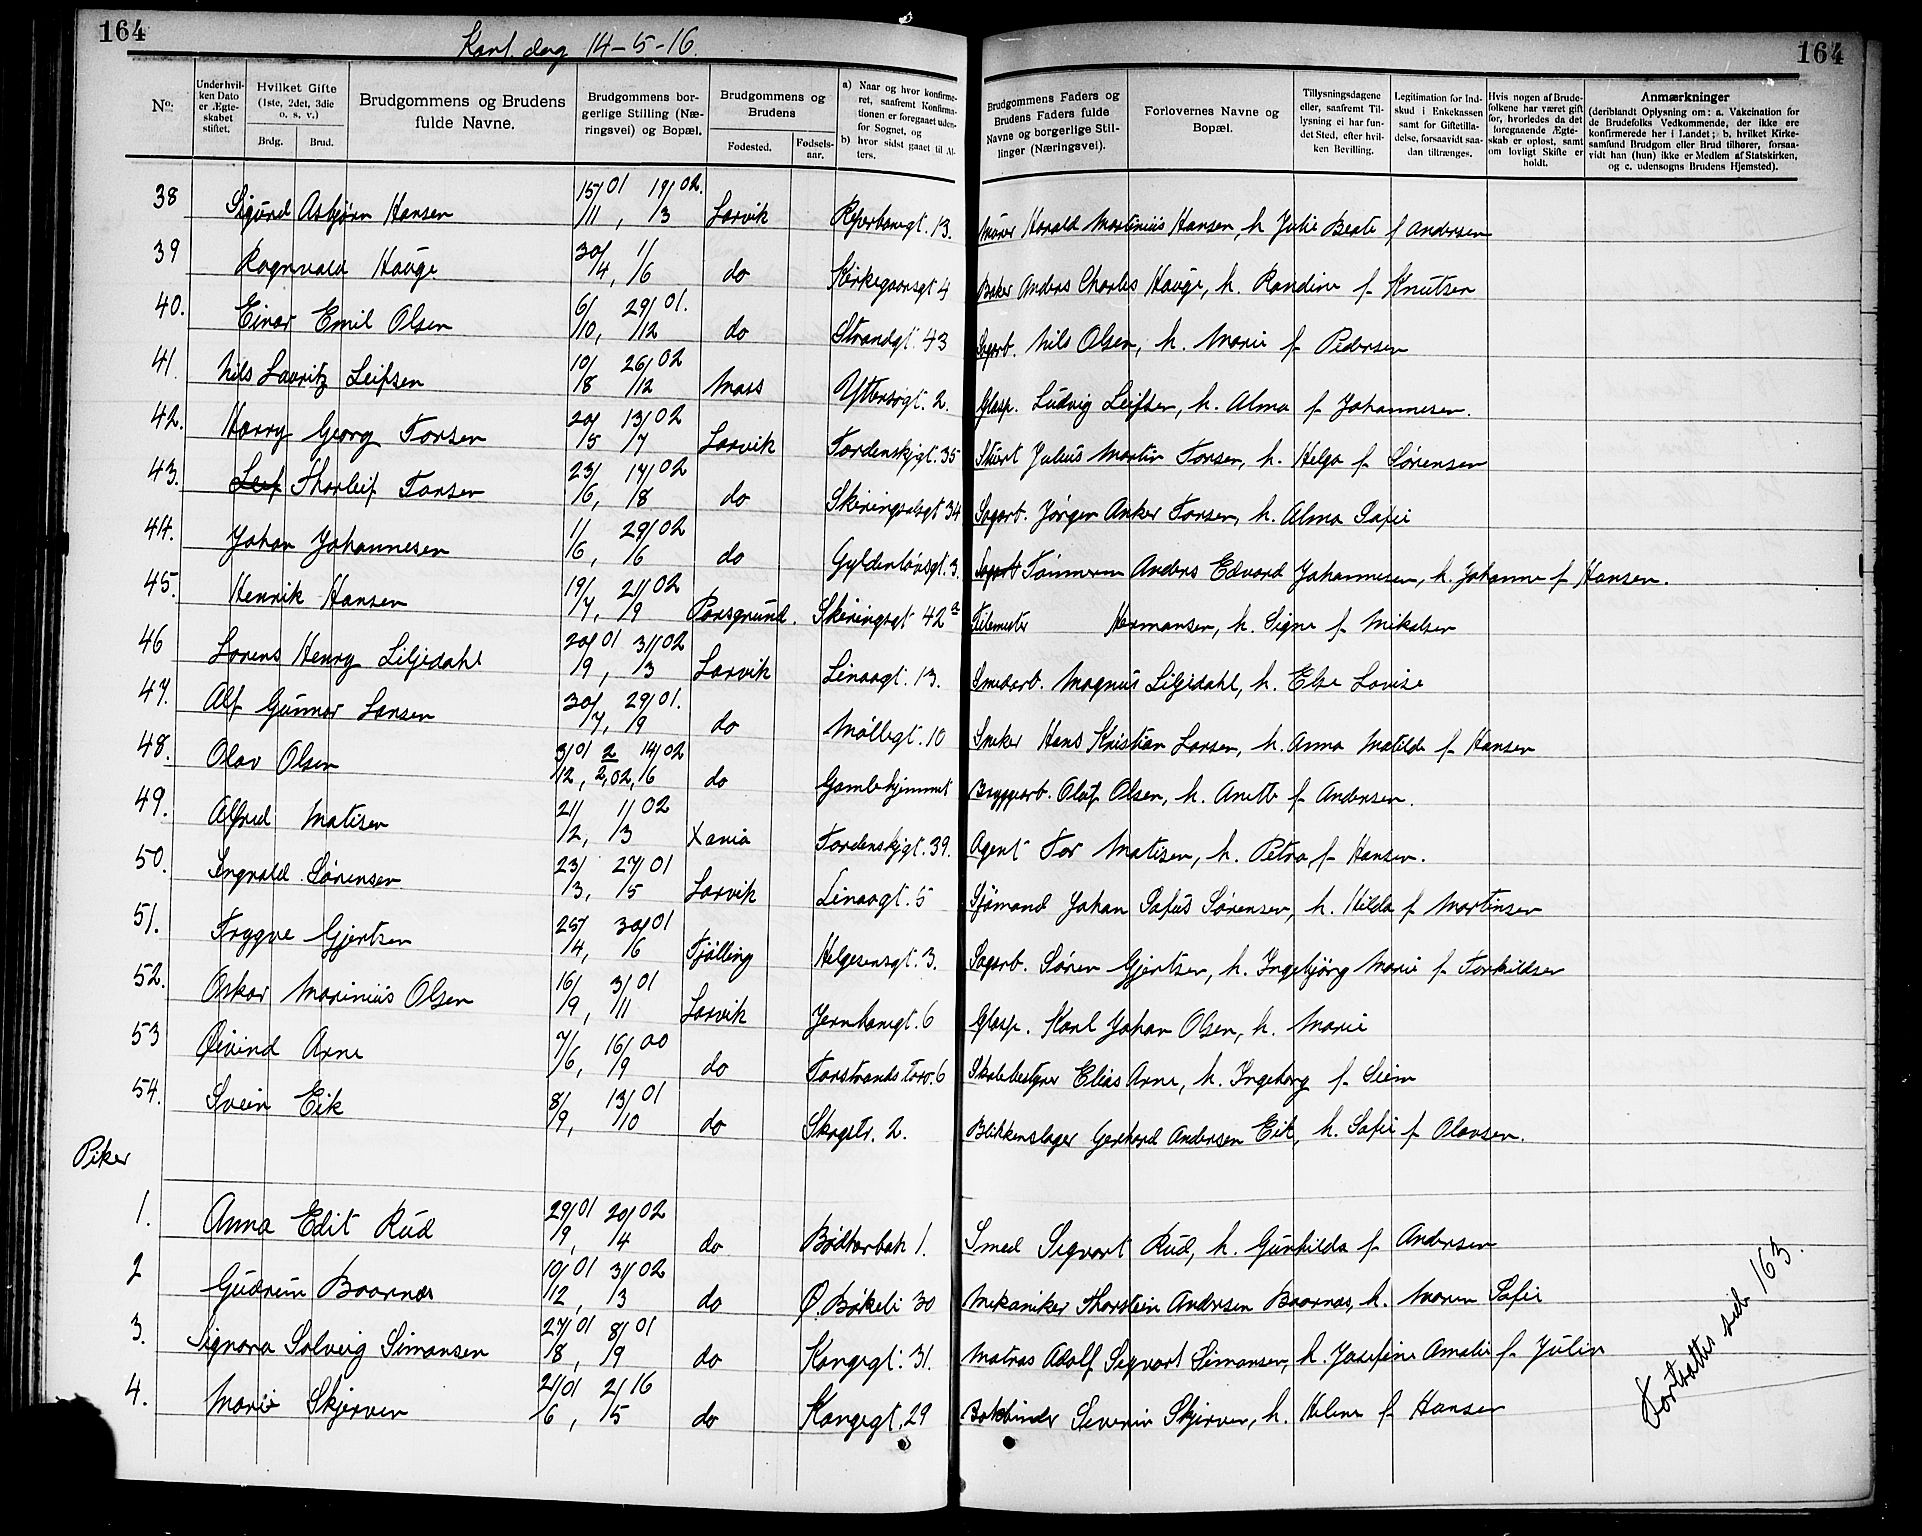 164
Konf. dag 14-5-16.
164
No.
Under hvilken Dato er Ægteskabet stiftet.
Hvilket Gifte (1ste, 2det, 3die o. s. v.)
Brdg. Brud.
Brudgommens og Brudens fulde Navne.
Brudgommens borgerlige Stilling (Næringsvei) og Bopæl.
Brudgommens og Brudens
Fødested. Fødselsaar.
a) Naar og hvor konfirmeret, saafremt Konfirmationen er foregaaet udenfor Sognet, og
b) hvor sidst gaaet til Alters.
Brudgommens Faders og Brudens Faders fulde Navne og borgerlige Stillinger (Næringsvei).
Forlovernes Navne og Bopæl.
Tillysningsdagene eller, saafremt Tillysning ei har fundet Sted, efter hvilken Bevilling.
Legitimation for Indskud i Enkekassen samt for Giftetilladelse, forsaavidt saadan tiltrænges.
Hvis nogen af Brudefolkene har været gift før, hvorledes da det foregaaende Ægteskab er opløst, samt om lovligt Skifte er holdt.
Anmærkninger
(deriblandt Oplysning om: a. Vakcination for de Brudefolks Vedkommende, der ikke ere konfirmerede her i Landet; b. hvilket Kirkesamfund Brudgom eller Brud tilhører, forsaavidt han (hun) ikke er Medlem af Statskirken, og c. udensogns Brudens Hjemsted).
38 Sigurd Asbjørn Hansen 15/11 01, 19/3 02. Larvik Reperbanegt. 13. Murer Harald Martinius Hansen, h. Julie Beate f. Andersen
39 Ragnvald Hauge 30/4, 1/6 do Kirkegaardsgt 4 Baker Anders Charles Hauge, h. Randine f. Knutsen
40. Einar Emil Olsen 6/10, 29/12 01. do Strandgt. 43 Sagarb. Nils Olsen, h. Marie f. Pedersen
41. Nils Lauritz Leifsen 10/8 26/12 02 Moss Yttersøgt. 2. Glasp. Ludvig Leifsen, h. Alma f. Johannesen.
42. Harry Georg Torsen 20/5 13/7 02 Larvik Tordenskjgt. 35 Stuert Julius Martin Torsen, h. Helga f. Sørensen
43. Leif Thorleif Torsen 23/6, 17/8 02 do Skiringsalsgt 34 Sagarb. Jørgen Anker Torsen, h. Alma Sofie
44. Johan Johannesen 1/6, 29/6 02 do Gyldenløvsgt. 3. Sagarb Tømmerm Anders Edvard Johannesen, h. Johanne f. Hansen.
45. Henrik Hansen 19/7, 21/9 02 Porsgrund. Skiringsgt 42 a Hermansen, h. Signe f. Mikalsen
46 Lorens Henry Liljedahl 20/9 01, 31/3 02 Larvik Linaagt. 13. Smedarb. Magnus Liljedahl, h. Else Lovise
47. Alf Gunnar Larsen 30/7, 29/9 01. do Møllegt. 10 Sneker Hans Kristian Larsen, h. Anna Matilde f. Hansen
48. Olav Olsen 3/12 01, 2/2 02, 14/6 02 do Gamlehjemmet Bryggearb. Olaf Olsen, h. Anette f. Andersen.
49. Alfred Matisen 21/2, 1/3 02 Xania Tordenskjgt. 39. Agent Tor Matisen, h. Petra f. Hansen.
50. Ingvald Sørensen 23/3, 27/5 01 Larvik Linaagt. 5 Sjømand Johan Sofus Sørensen, h. Hilda f. Martinsen
51. Trygve Gjertsen 25/4, 30/6 01 Tjølling Helgesensgt. 3. Sagarb. Søren Gjertsen, h. Ingebjørg Marie f. Torkildsen
52. Oskar Marinius Olsen 16/9, 3/11 01 Larvik Jernbanegt. 6 Glasp. Karl Johan Olsen, h. Marie
53 Øivind Arne 7/6, 16/9 00 do Torstrands torv. 6 Skolebestyrer Elias Arne, h. Ingeborg f. Seim
54. Svein Eik 8/9, 13/10 01 do Skogstr. 2. Blikkenslager Gerhard Andersen Eik, h. Sofie f. Olavsen.
Piker
1. Anna Edit Rud 29/9 01, 20/4 02 do Bødkerbak 1. Smed Sigvart Rud, h. Gunhilda f. Andersen
2 Gudrun Baarnes 10/12 01, 31/3 02 do Ø. Bøkeli 30 Mekaniker Thorstein Andersen Baarnes, h. Maren Sofie
3. Signora Solveig Simonsen 27/8 01, 8/9 01 do Kongegt. 31. Matros Adolf Sigvart Simonsen, h. Josefine Amalie f. Julin
4. Marie Skjerven 21/6 01, 2/5 16 do Kongegt. 29 Bokbinder Severin Skjerven, h. Helene f. Hansen
Fortsættes side 163.